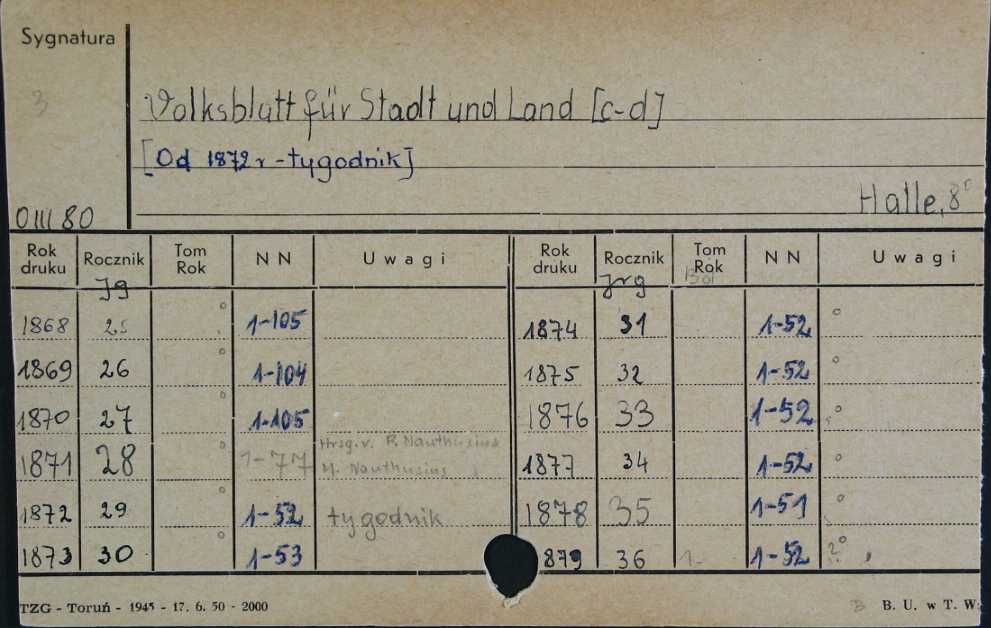 Sygnatura
3
Volksblatt für Stadt und Land [c-d]
[Od 1872 r - tygodnik]
Halle, 8°
O III 80
Rok druku Rocznik Tom Rok NN Uwagi Rok druku Rocznik Tom Rok NN Uwagi
Jg Jrg
1868 25 ° 1-105 1874 31 1-52 °
1869 26 ° 1-104 1875 32 1-52 °
1870 27 ° 1-105 1876 33 1-52 °
Hrsg. v. P. Nauthusius
1871 28 ° 1-77 M. Nauthusius 1877 34 1-52 °
1872 29 ° 1-52 tygodnik 1878 35 1-51 °
1873 30 ° 1-53 879 36 1- 1-52 2°
TZG - Toruń - 1945 - 17. 6. 50 - 2000 B B. U. w T. W